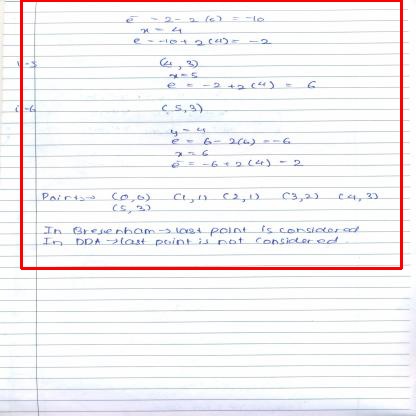 e = 2 - 2(6) = -10
x = 4
e = -10 + 2(4) = -2
i=5 (4,3)
x = 5
e = -2 + 2(4) = 6
i=6 (5,3)
y = 4
e = 6 - 2(6) = -6
x = 6
e = -6 + 2(4) = 2
Points → (0,0) (1,1) (2,1) (3,2) (4,3)
(5,3)
In Bresenham → last point is considered
In DDA → last point is not considered.